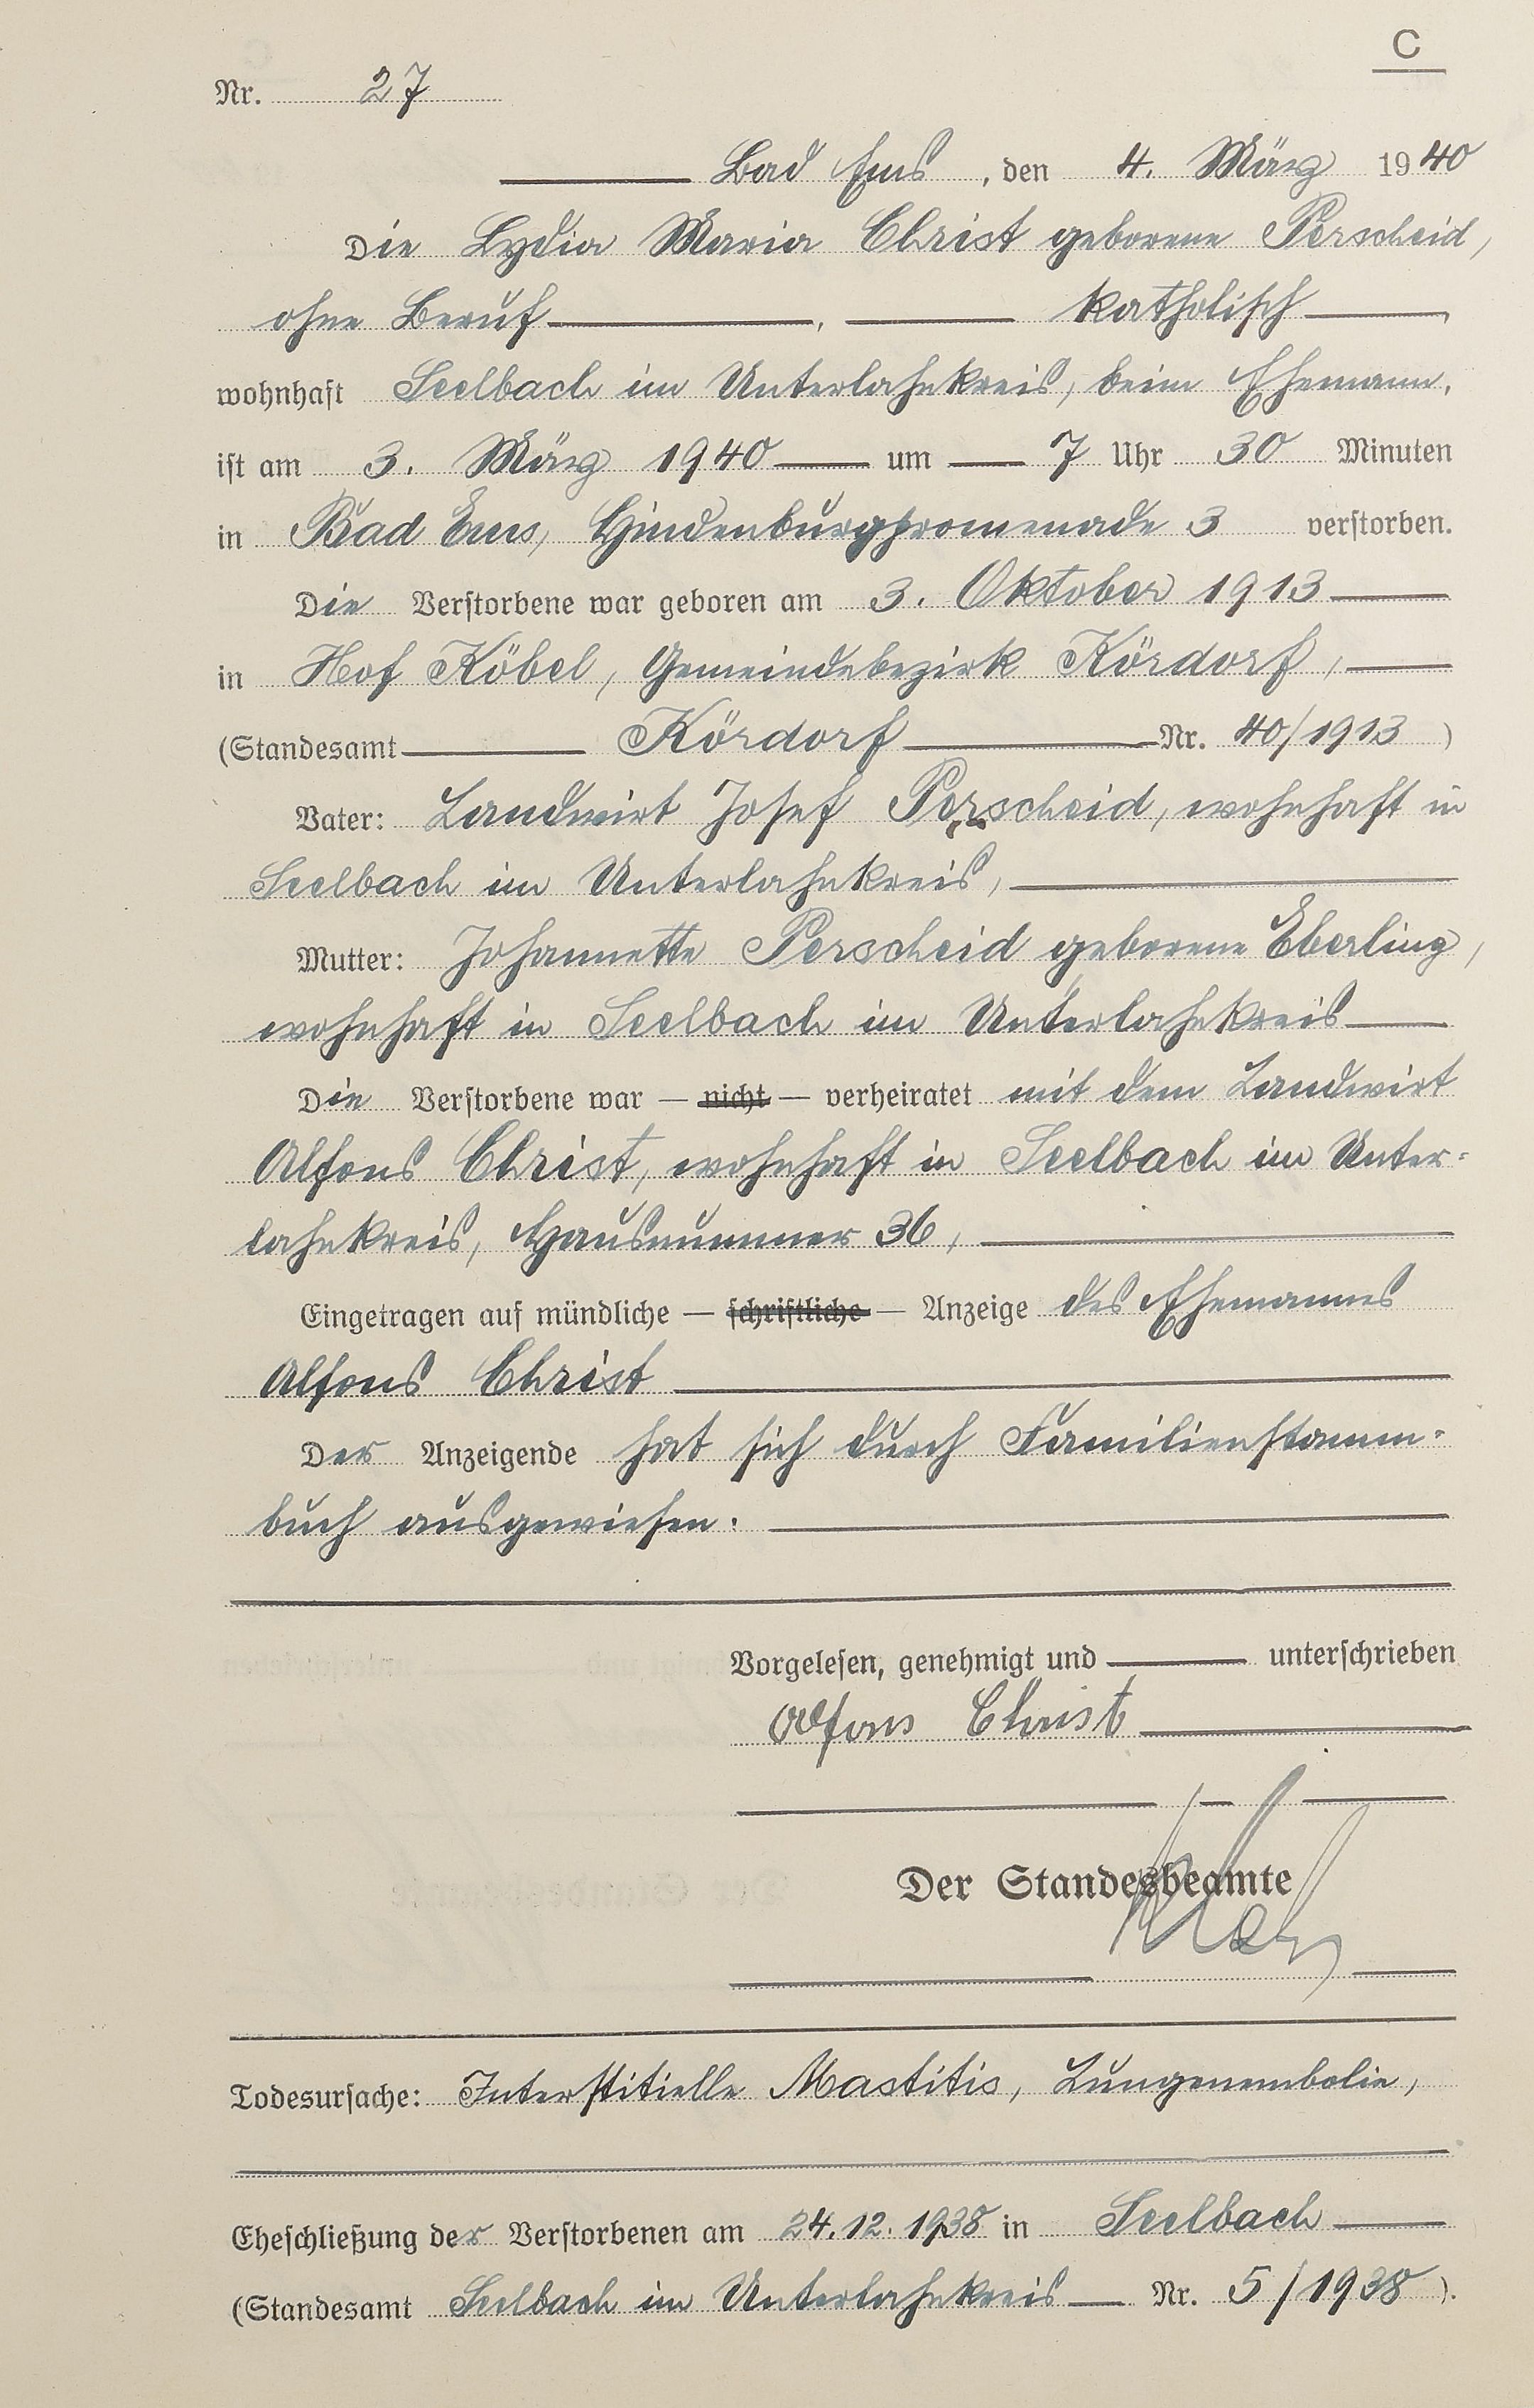 C
Nr. 27
Bad Ems, den 4. März 1940
Die Lydia Maria Christ geborene Perscheid,
ohne Beruf, katholisch
wohnhaft Seelbach im Unterlahnkreis, beim Ehemann,
ist am 3. März 1940 um 7 Uhr 30 Minuten
in Bad Ems, Hindenburgpromenade 3 verstorben.
Die Verstorbene war geboren am 3. Oktober 1913
in Hof Köbel, Gemeindebezirk Kördorf,
(Standesamt Kördorf Nr. 40/1913)
Vater: Landwirt Josef Perscheid, wohnhaft in
Seelbach im Unterlahnkreis,
Mutter: Johannette Perscheid geborene Eberling,
wohnhaft in Seelbach im Unterlahnkreis
Die Verstorbene war — nicht — verheiratet mit dem Landwirt
Alfons Christ, wohnhaft in Seelbach im Unter-
lahnkreis, Hausnummer 36,
Eingetragen auf mündliche — schriftliche — Anzeige des Ehemannes
Alfons Christ
Der Anzeigende hat sich durch Familienstamm-
buch ausgewiesen.
Vorgelesen, genehmigt und unterschrieben
Alfons Christ
Der Standesbeamte
Todesursache: Interstitielle Mastitis, Lungenembolie,
Eheschließung der Verstorbenen am 24.12.1938 in Seelbach
(Standesamt Seelbach im Unterlahnkreis Nr. 5/1938).